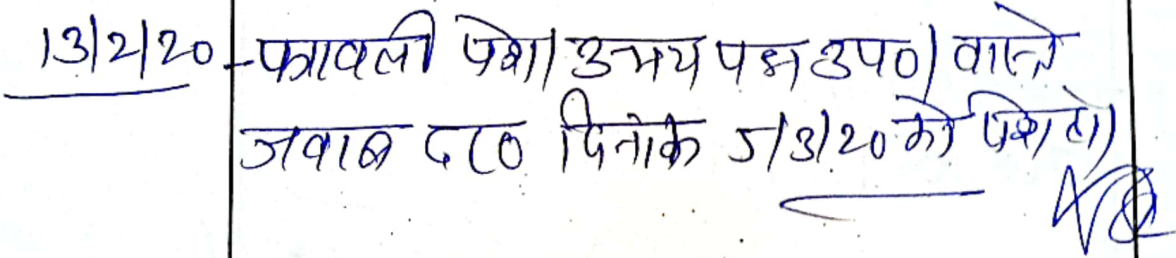 13/2/20 पत्रावली पेश। उभय पक्ष उप०। वास्ते
जवाब द०र० दिनांक 5/3/20 को पेश हो।